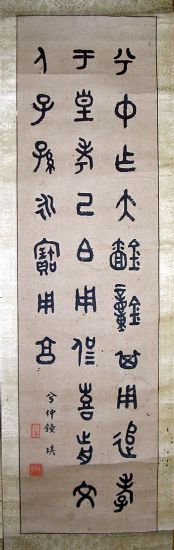 兮中乍大鐘其用追孝
于皇考己白用侃喜前文
人子孫永寶用享
兮仲鐘 琪